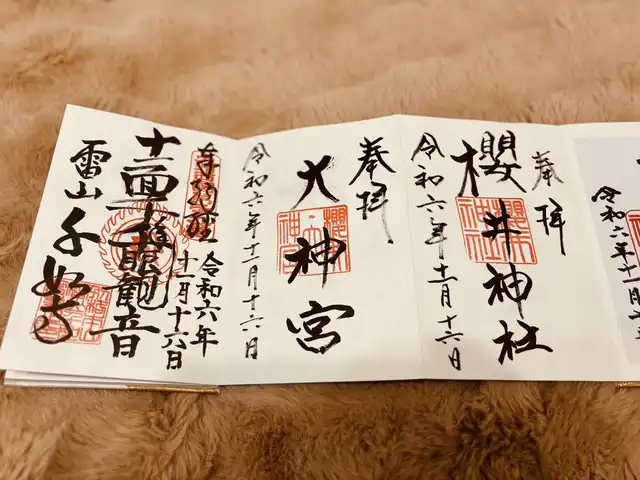 令和六年十一月
奉拝
櫻井神社
令和六年十一月十六日
奉拝
大神宮
令和六年十一月十六日
奉納経
令和六年
十一月十六日
十一面千手千眼觀音
雷山千如寺